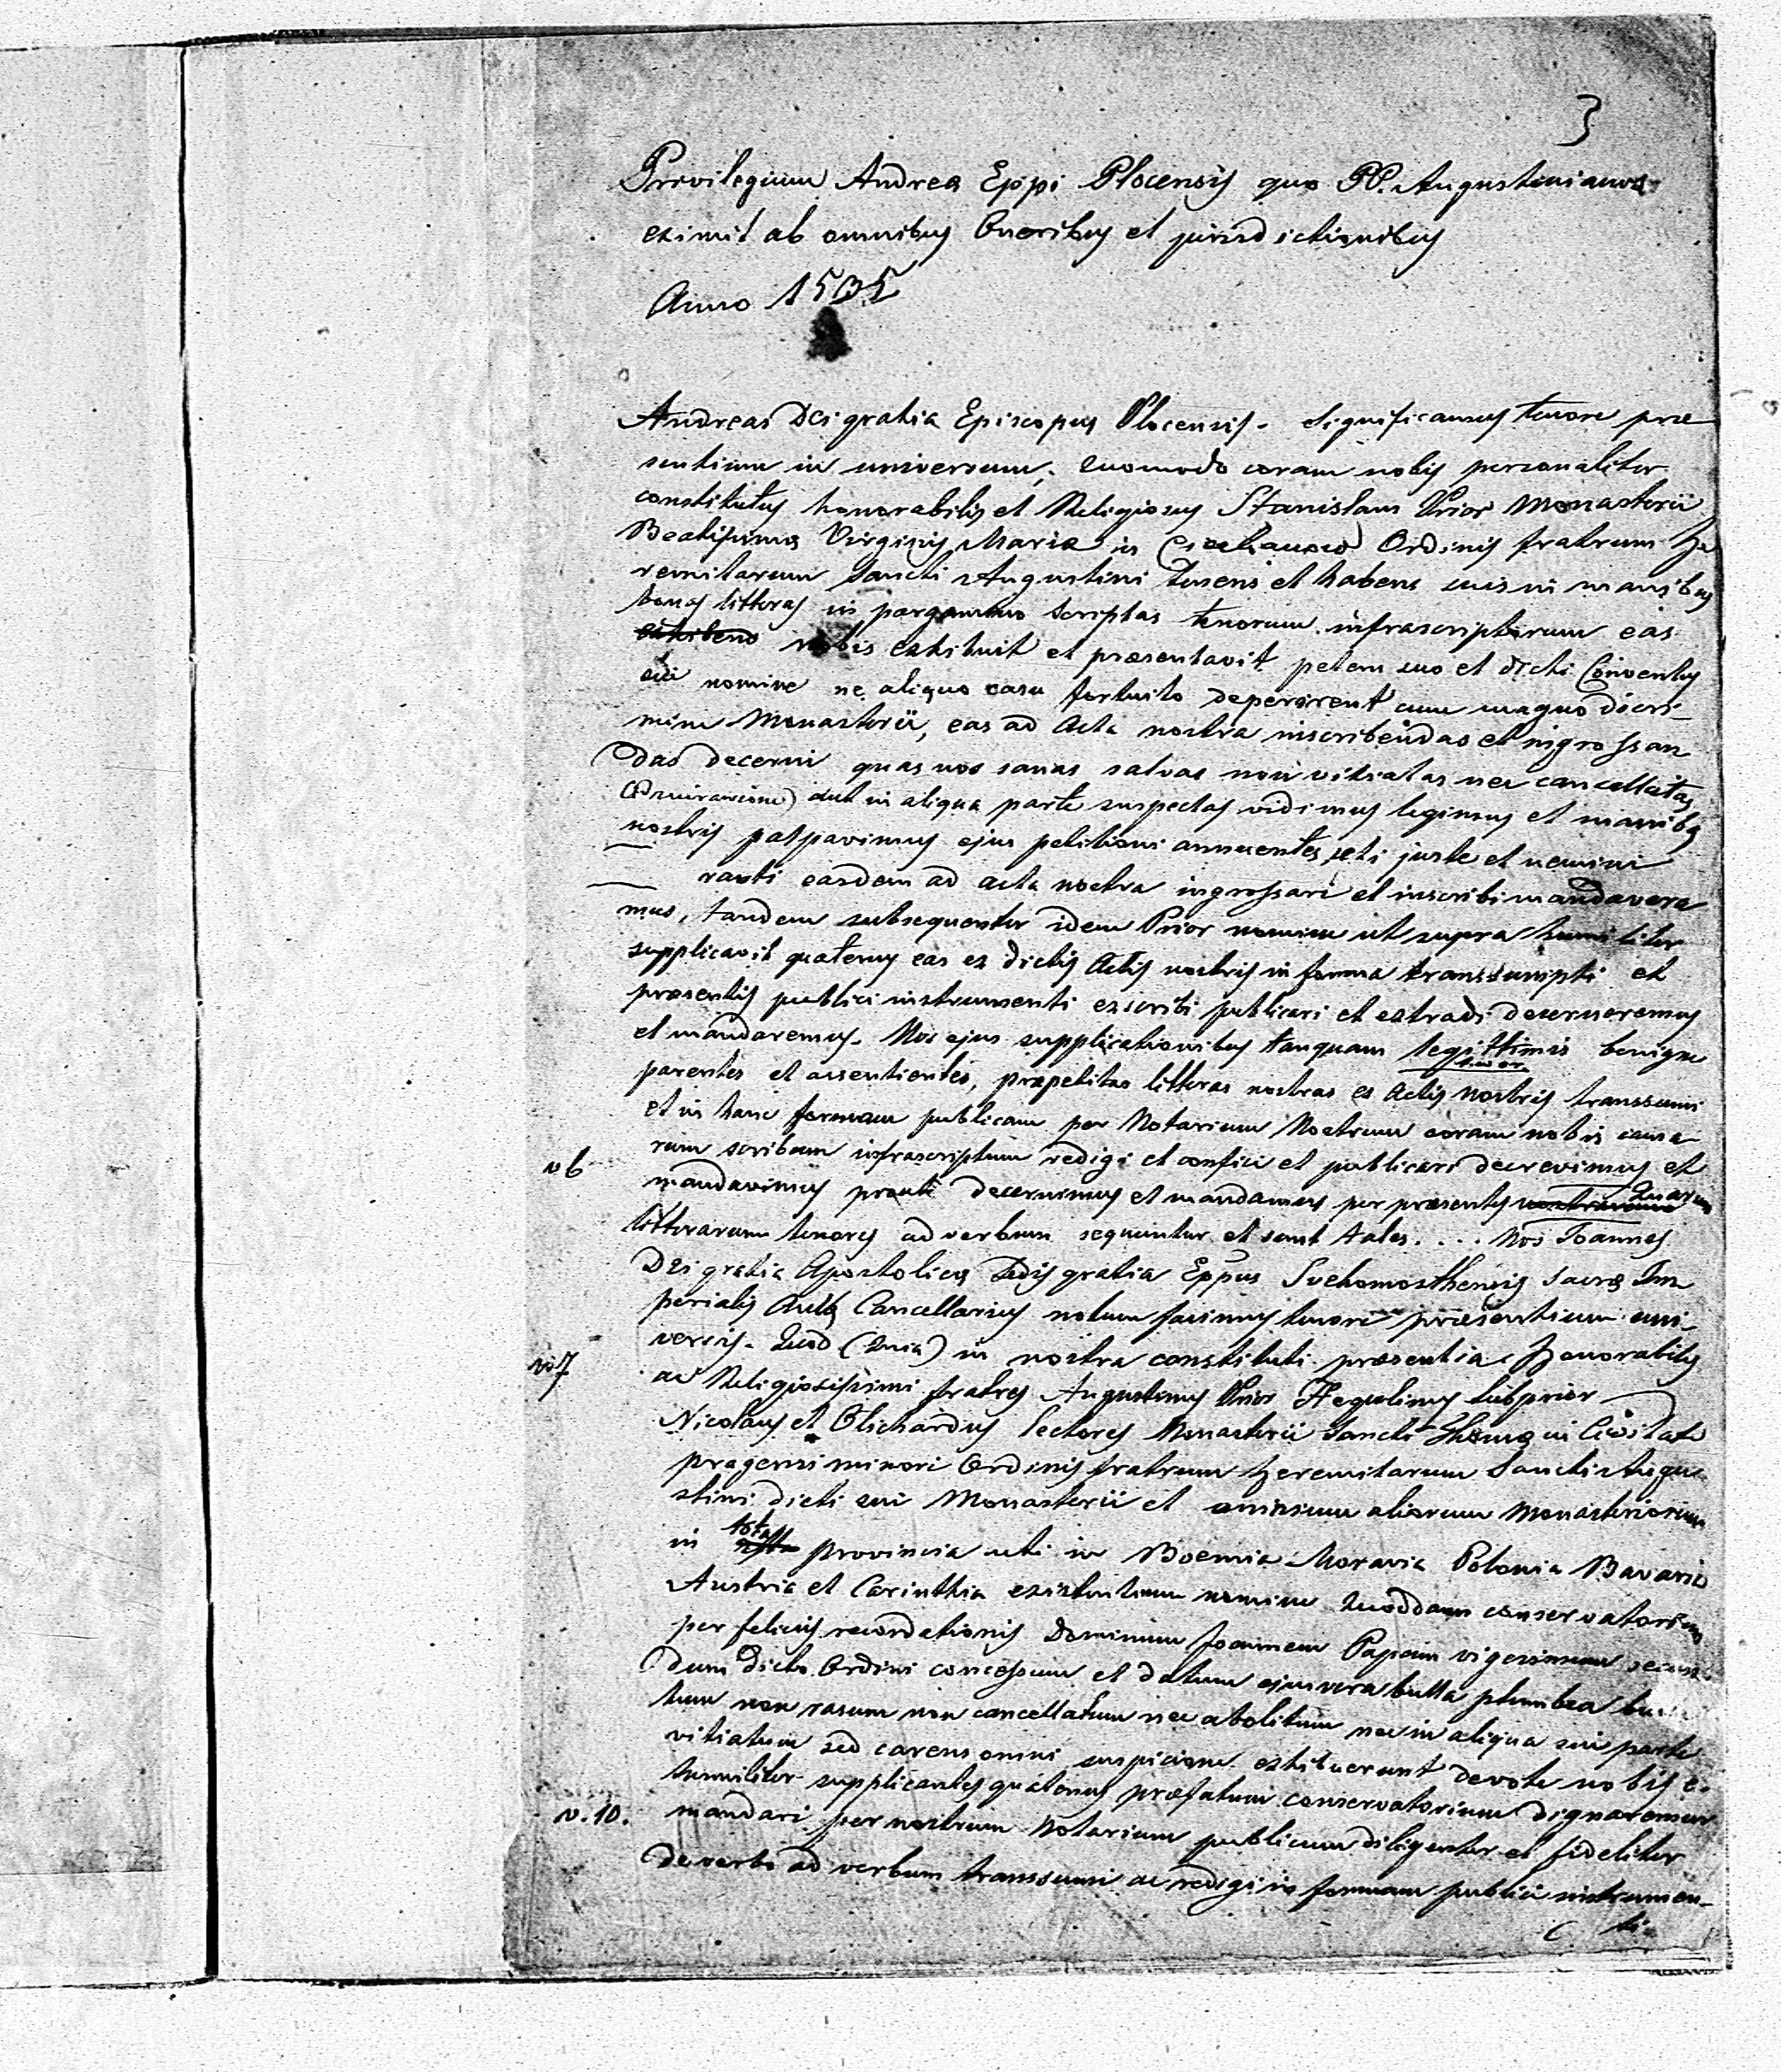 3
Privilegium Andreæ Eppi Plocensis quo PP. Augustinianos
eximit ab omnibus Oneribus et jurisdictionibus
Anno 1535
Andreas Dei gratia Episcopus Plocensis. Significamus tenore præ
sentium in universum, Quomodo coram nobis personaliter
constitutus honorabilis et Religiosus Stanislaus Prior Monasterii
Beatissimæ Virginis Mariæ in Ciechanow Ordinis fratrum He
remitarum Sancti Augustini tenens et habens suis in manibus
bonas litteras in pargameno scriptas tenorum infrascriptorum eas
exhibens nobis exhibuit et præsentavit petens suo et dicti Conventus
sui nomine ne aliquo casu fortuito deperirent cum magno discri-
mine Monasterii, eas ad Acta nostra inscribendas et ingrossan
das decerni quas nos sanas salvas non vitiatas nec cancellatas
aut in aliqua parte suspectas vidimus legimus et manibs
nostris palpavimus ejus petitioni annuentes uti juste et nemini
easdem ad acta nostra ingrossari et inscribi mandavera
mus, tandem subsequenter idem Prior nomine ut supra humiliter
supplicavit quatenus eas ex dictis Actis nostris in forma transsumpti et
præsentis publici instrumenti exscribi publicari et extradi decerneremus
et mandaremus. Nos ejus supplicationibus tanquam legittimis benigne
parentes et assentientes, præpetitas litteras nostras ex Actis nostris transsumi
et in hanc formam publicam per Notarium Nostrum coram nobis causa
rum scribam infrascriptum redigi et confici et publicari decrevimus et
v6 mandavimus prout decernimus et mandamus per præsentes Quarum
litterarum tenores ad verbum sequuntur et sunt tales. . . . Nos Joannes
Dei gratia Apostolicæ Sedis gratia Eppus Luthomosthensis Sacræ Im
perialis Aulæ Cancellarius notum facimus tenore præsentium uni
versis. Quod (Quia) in nostra constituti præsentia Honorabiles
v7 ac Religiosissimi fratres Augustinus Prior Subprior
Nicolaus et Lectores Monasterii Sancti Thomæ in Civitate
pragensi minori Ordinis fratrum Heremitarum Sancti Augu-
stini dicti sui Monasterii et omnium aliorum Monasteriorum
in tota provincia uti in Boemia Moravia Polonia Bavaria
Austria et Carinthia existentium nomine Quoddam conservatorium
per felicis recordationis Dominum Joannem Papam vigesimum secun-
dum Dicto Ordini concessum et datum ejus vera bulla plumbea
tum non rasum non cancellatum nec abolitum nec in aliqua sui parte
vitiatum sed carens omni suspicione exhibuerunt devote nobis
humiliter supplicantes quatenus præfatum conservatorium dignaremur
v.10. mandari per nostrum Notarium publicum diligenter et fideliter
de verbo ad verbum transsumi ac redigi in formam publici instrumen-
ti